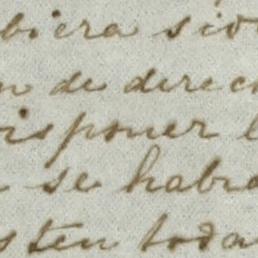 biera sido
n de derec
isponer l
se habra
sten toda